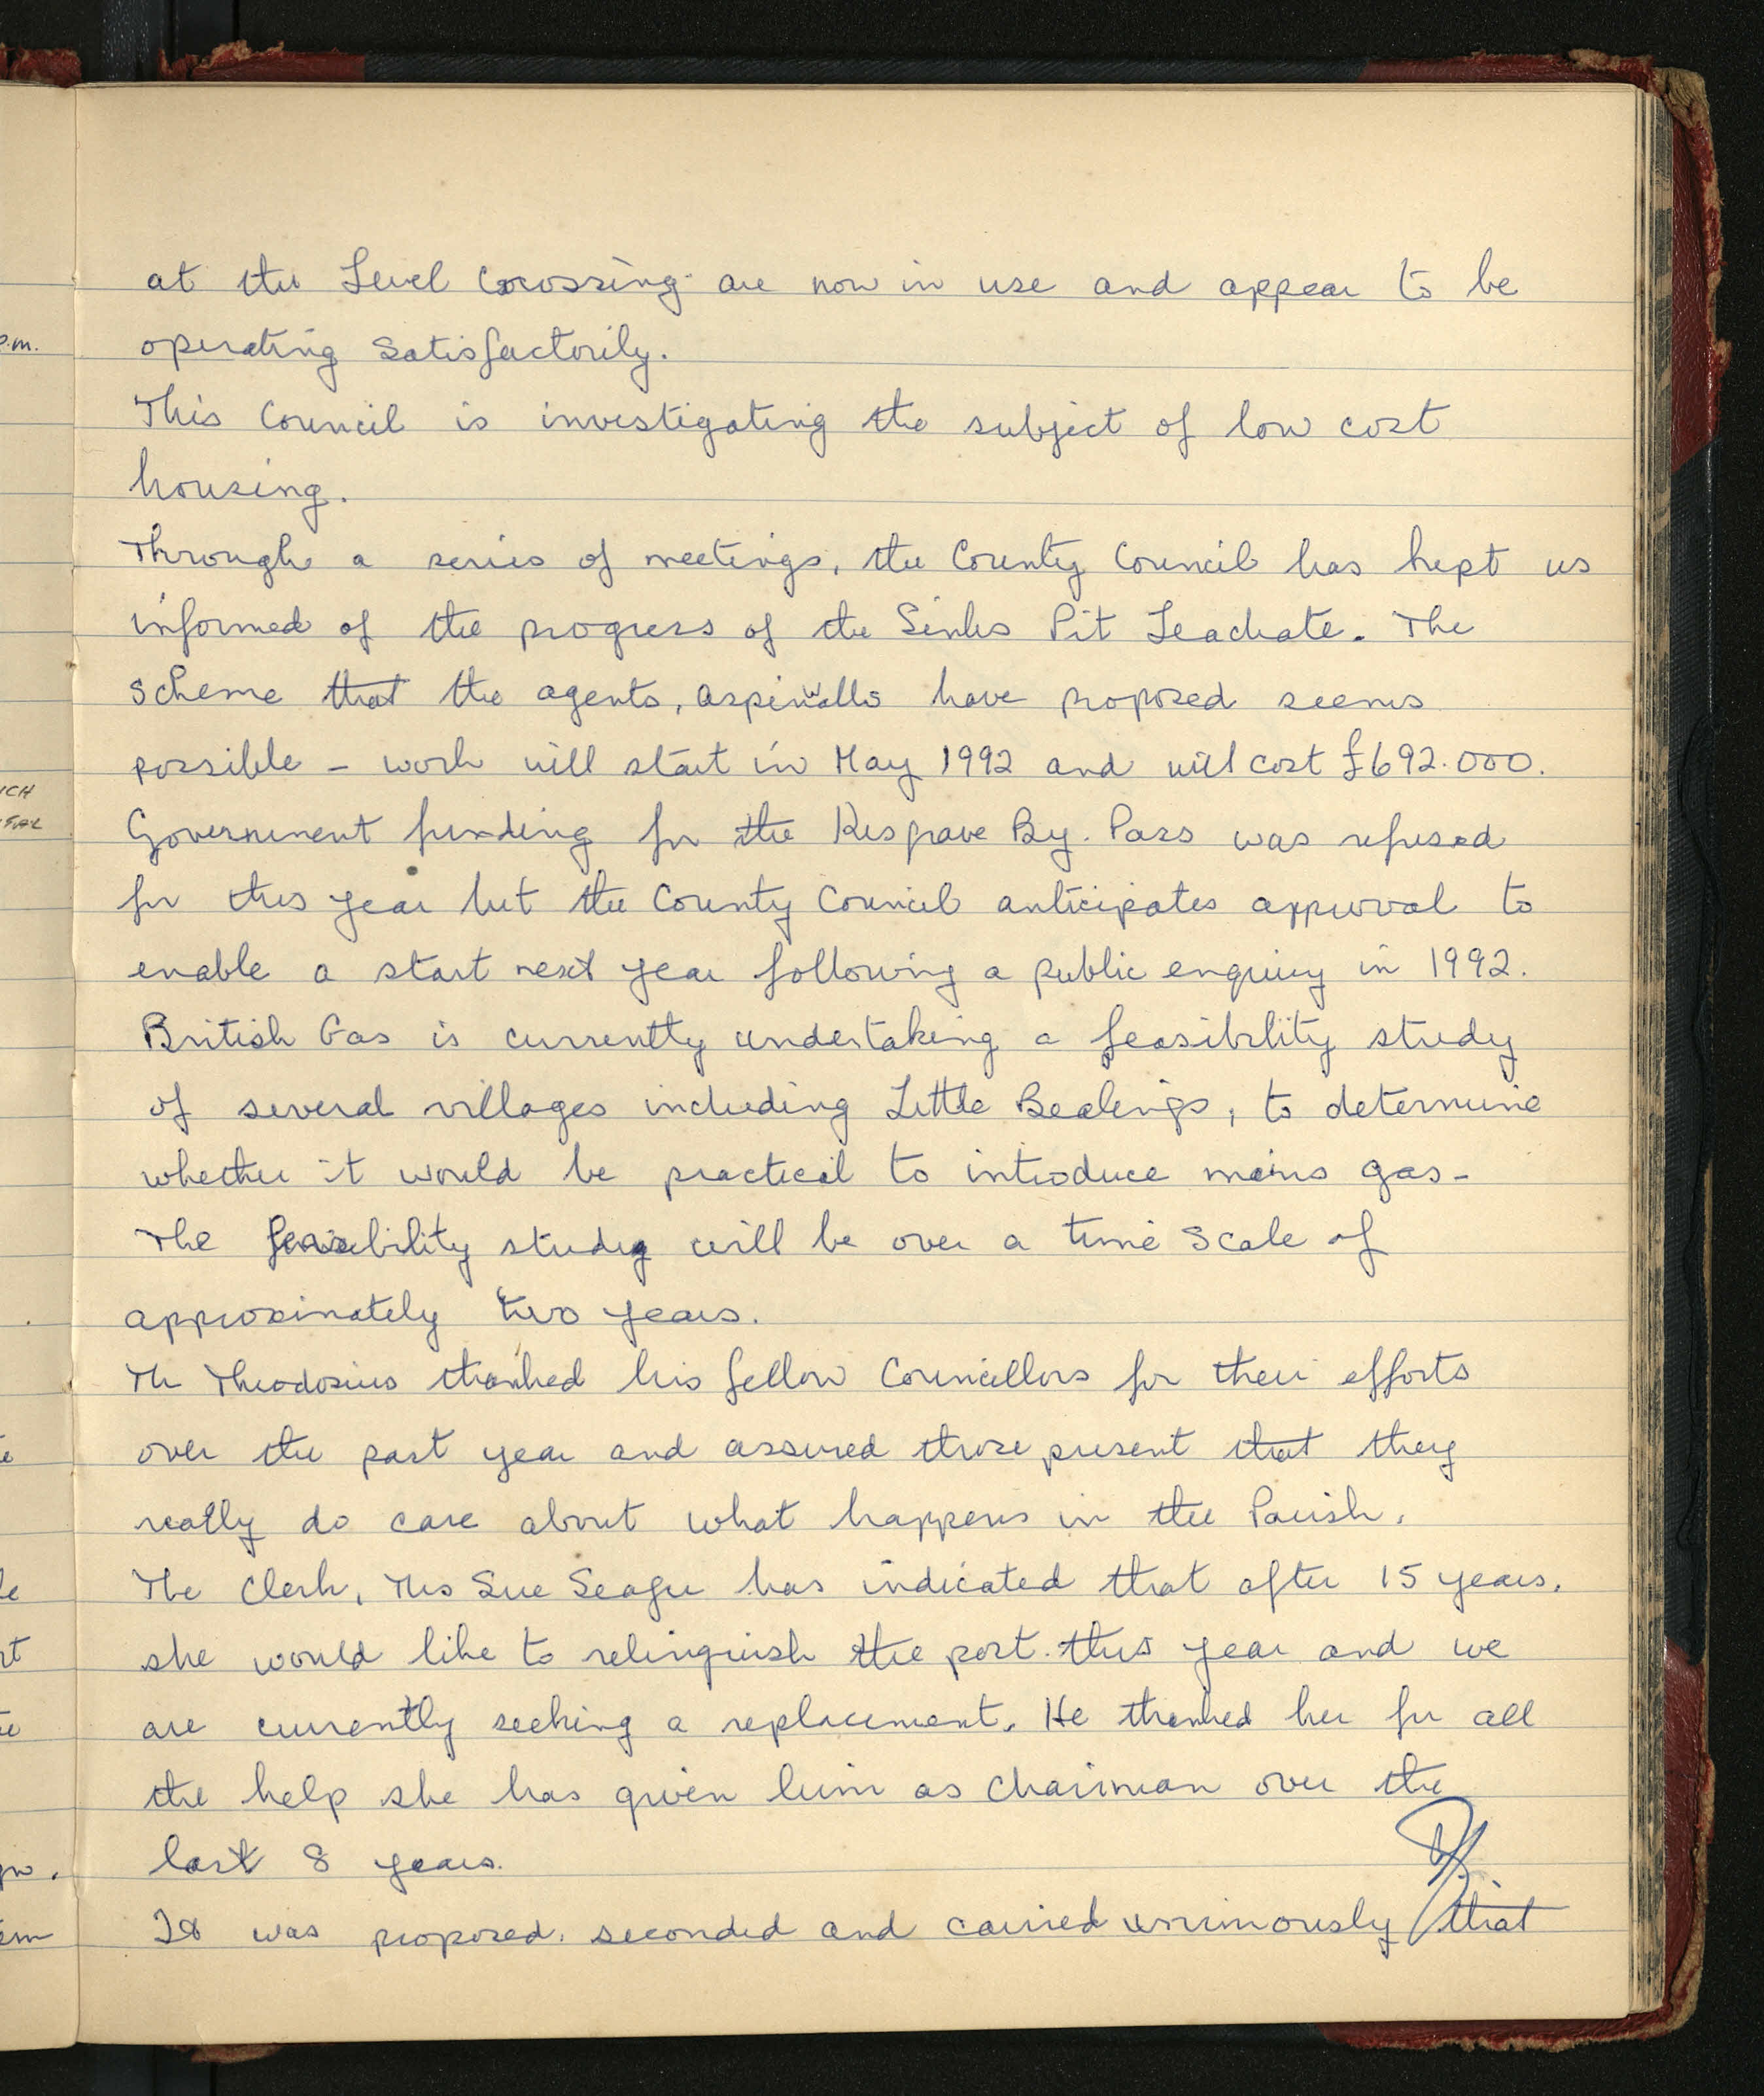 at the Level Crossing are now in use and appear to be
operating satisfactorily.
This Council is investigating the subject of low cost
housing.
Through a series of meetings, the County Council has kept us
informed of the progress of the Sinks Pit Leachate. The
scheme that the agents, Aspinwalls have proposed seems
possible - work will start in May 1992 and will cost £692.000.
Government funding for the Kesgrave By. Pass was refused
for this year but the County Council anticipates approval to
enable a start next year following a public enquiry in 1992.
British Gas is currently undertaking a feasibility study
of several villages including Little Bealings, to determine
whether it would be practical to introduce mains gas-
The feasibility study will be over a time scale of
approximately two years.
Mr Theodosius thanked his fellow Councillors for their efforts
over the past year and assured those present that they
really do care about what happens in the Parish.
The Clerk, Mrs Sue Seager has indicated that after 15 years,
she would like to relinquish the post this year and we
are currently seeking a replacement. He thanked her for all
the help she has given him as Chairman over the
last 8 years.
It was proposed, seconded and carried unimously that